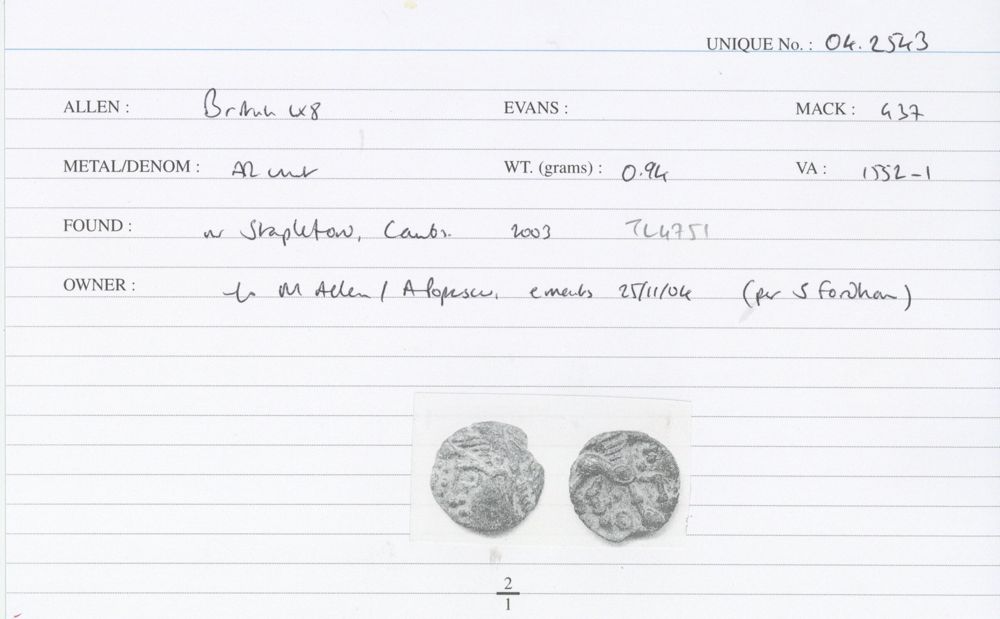 UNIQUE No. : 04.2543
ALLEN : British LX8 EVANS : MACK : 437
METAL/DENOM : AR unit WT. (grams) : 0.94 VA : 1552-1
FOUND : nr Stapleton, Cambs. 2003 TL4751
OWNER : M Allen / A Popescu, emails 25/11/04 (per S Fordham)
2
1